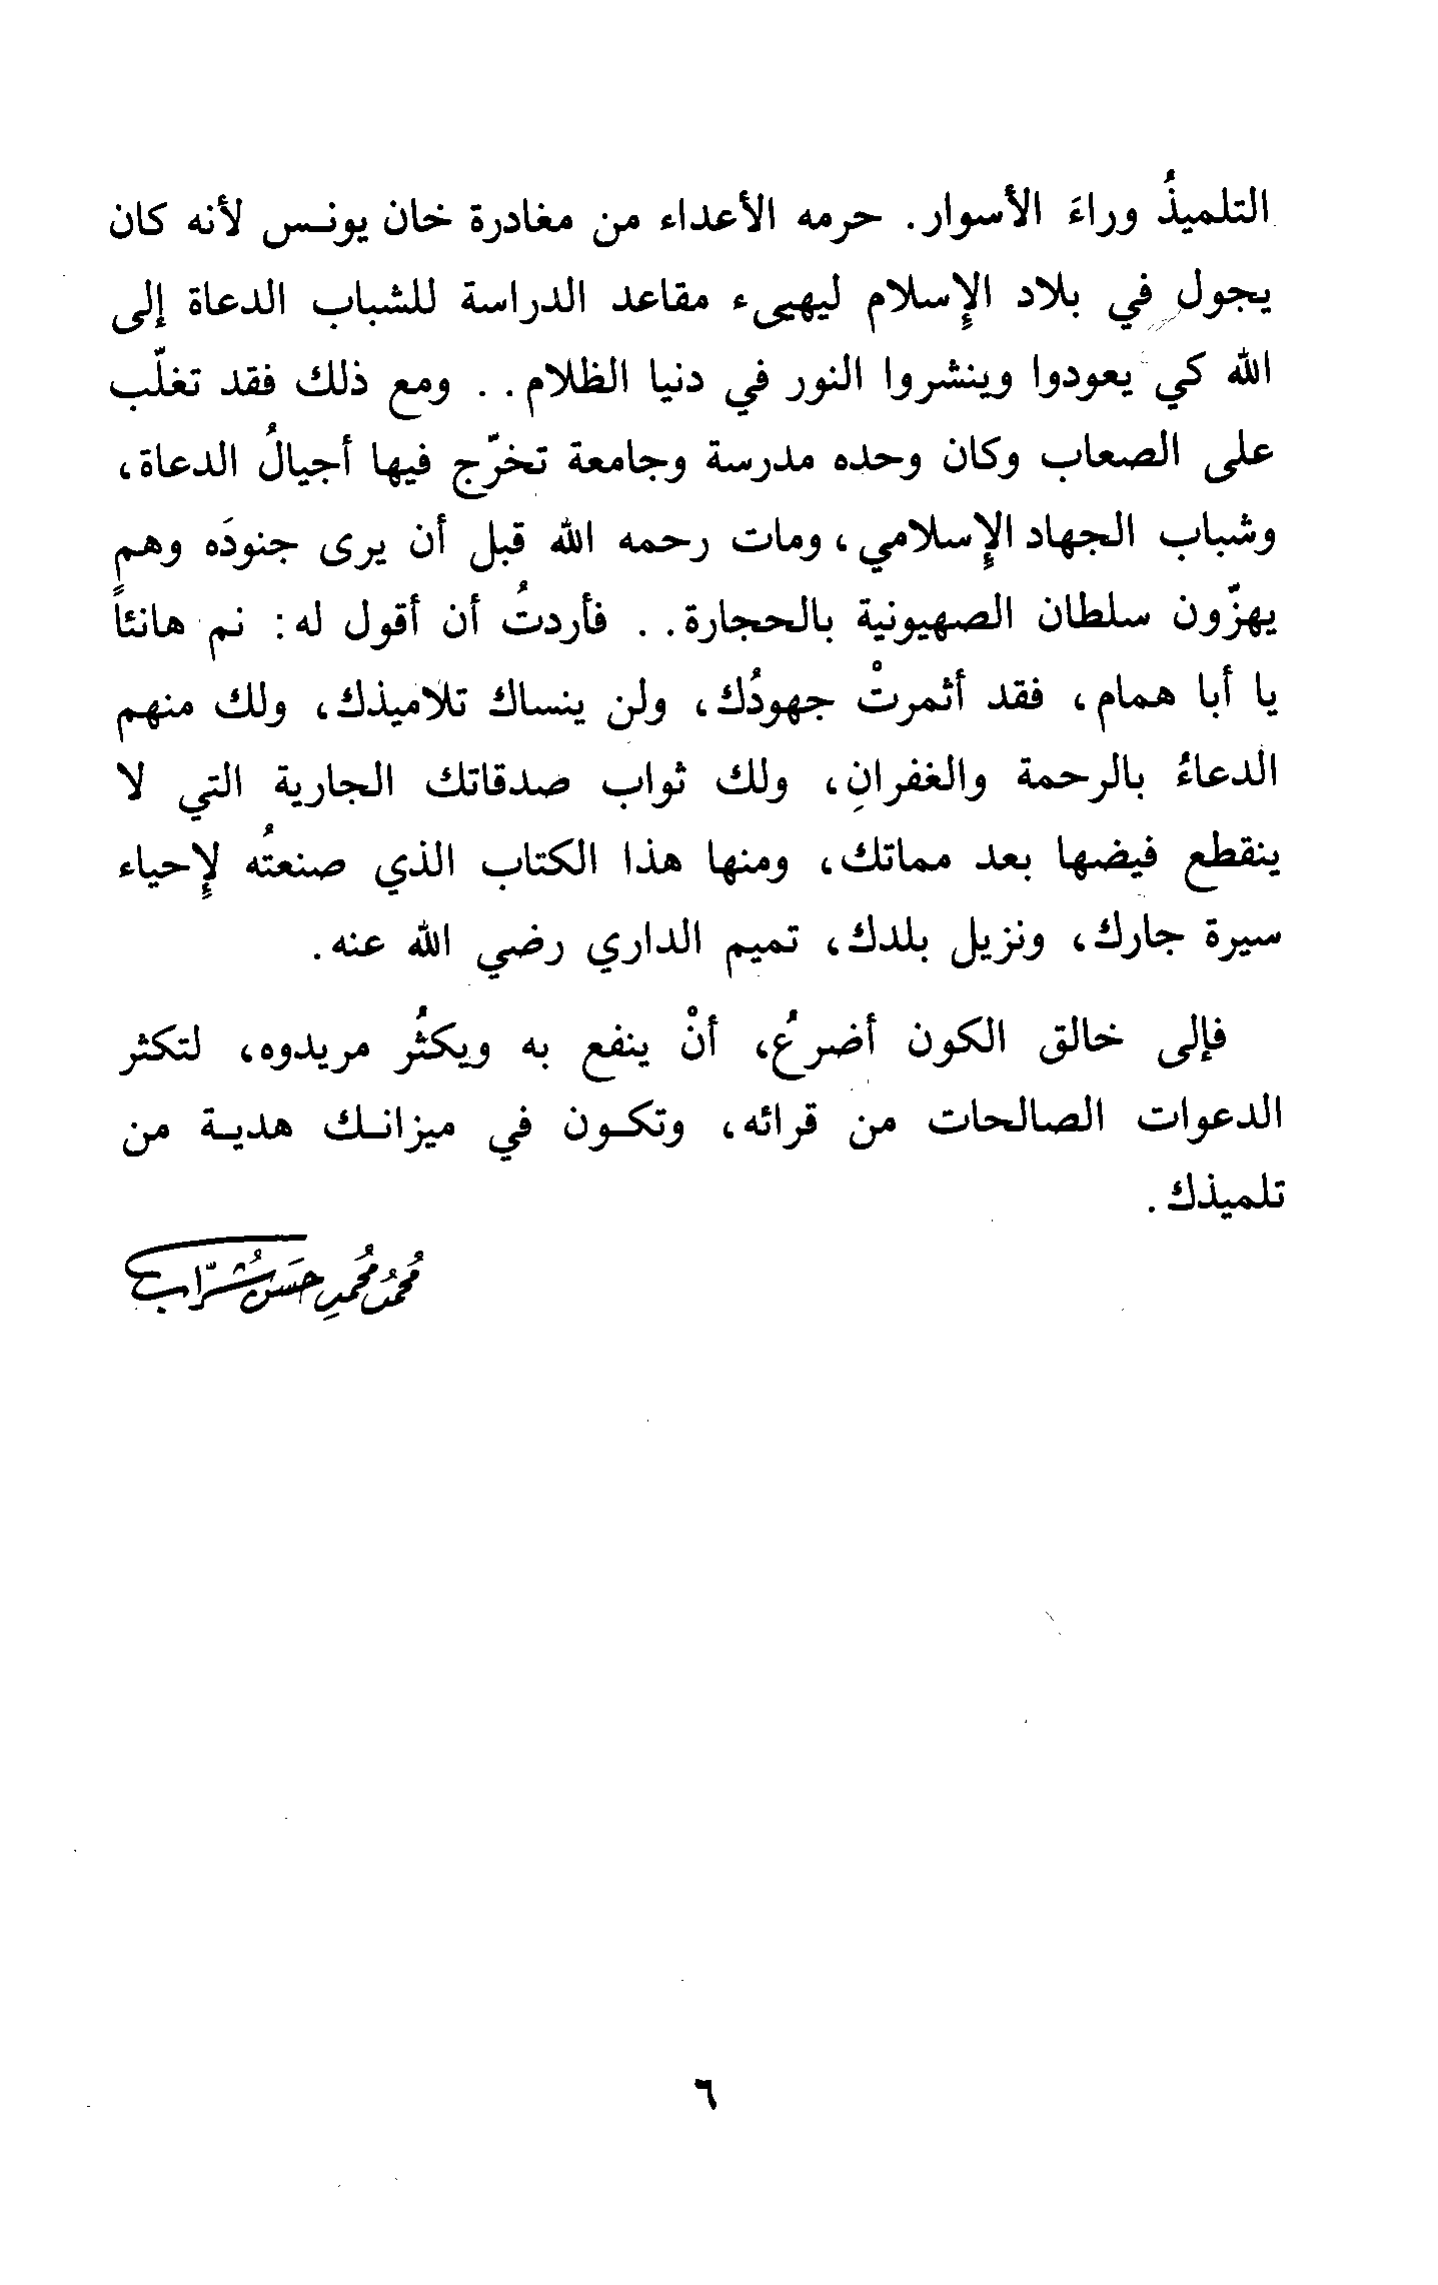 التلميذُ وراءَ الأسوار. حرمه الأعداء من مغادرة خان يونـس لأنه كان
يجول في بلاد الإسلام ليهيىء مقاعد الدراسة للشباب الدعاة إلى
الله كي يعودوا وينشروا النور في دنيا الظلام.. ومع ذلك فقد تغلّب
على الصعاب وكان وحده مدرسة وجامعة تخرّج فيها أجيالُ الدعاة،
وشباب الجهاد الإسلامي، ومات رحمه الله قبل أن يرى جنودَه وهم
يهزّون سلطان الصهيونية بالحجارة.. فأردتُ أن أقول له: نم هانئاً
يا أبا همام، فقد أثمرتْ جهودُك، ولن ينساك تلاميذك، ولك منهم
الدعاءُ بالرحمة والغفرانِ، ولك ثواب صدقاتك الجارية التي لا
ينقطع فيضها بعد مماتك، ومنها هذا الكتاب الذي صنعتُه لإحياء
سيرة جارك، ونزيل بلدك، تميم الداري رضي الله عنه.
فإلى خالق الكون أضرعُ، أنْ ينفع به ويكثُر مريدوه، لتكثر
الدعوات الصالحات من قرائه، وتكـون في ميزانـك هديـة من
تلميذك.
محمدُ محُمدِ حسَن شُرّاب
٦